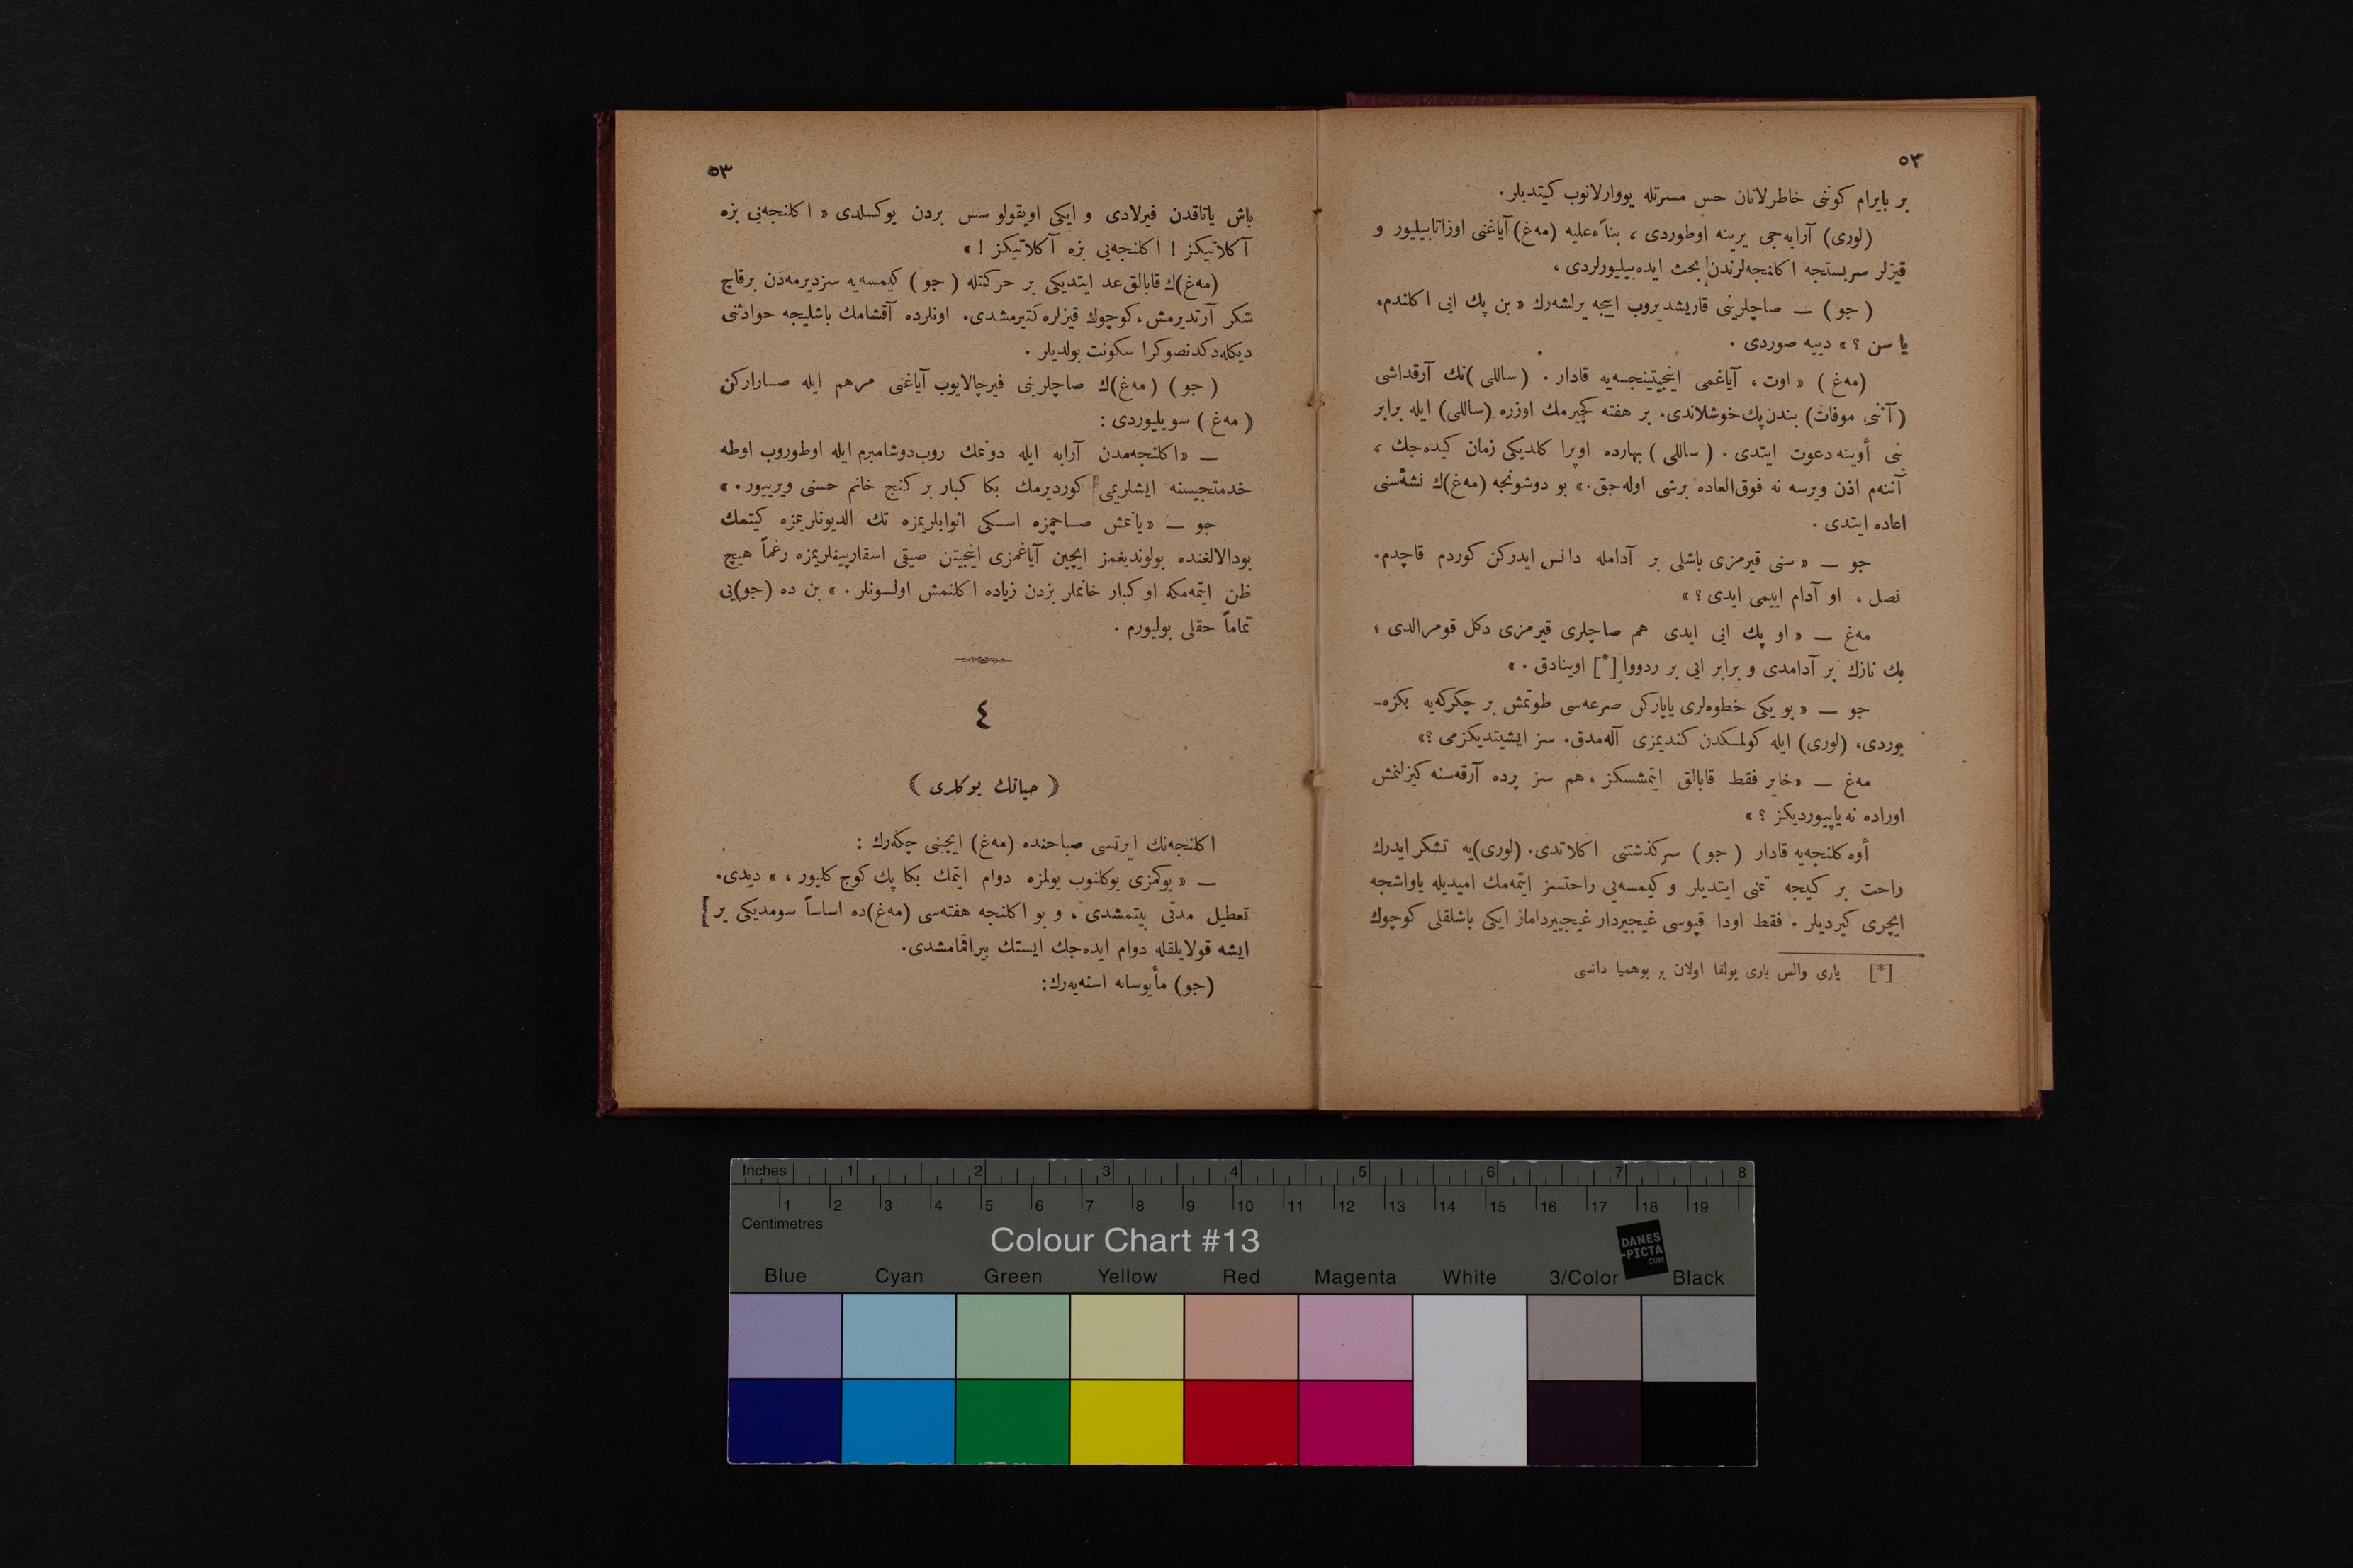 ٥٢
بر بایرام كوننی خاطرلاتان حس مسرتله یووارلانوب كیتدیلر.
(لوری) آرابه‌جی یرینه اوطوردی ، بناءً علیه (مه‌غ) آیاغنی اوزاتابیلیور و
قیزلر سربستجه اكلنجه‌لرندن بحث ایده‌بیلیورلردی ،
( جو ) — صاچلرینی قاریشدیروب اییجه یرلشه‌رك « بن پك ایی اكلندم.
یا سن ؟ » دییه صوردی .
(مه‌غ) « اوت ، آیاغمی اینجیتینجـه‌یه قادار . ( ساللی )نك آرقداشی
(آننی موفات) بندن پك خوشلاندی. بر هفته كچیرمك اوزره (ساللی) ایله برابر
بنی أوینه دعوت ایتدی . ( ساللی ) بهارده اوپرا كلدیكی زمان كیده‌جك ،
آننه‌م اذن ویرسه نه فوق‌العاده برشی اوله‌جق.» بو دوشونجه (مه‌غ)ك نشئه‌سنی
اعاده ایتدی .
جو — « سنی قیرمزی باشلی بر آدامله دانس ایدركن كوردم قاچدم.
نصل ، او آدام اییمی ایدی ؟ »
مه‌غ — « او پك ایی ایدی هم صاچلری قیرمزی دكل قومرالدی ؛
پك نازك بر آدامدی و برابر ایی بر ردووا [*] اوینادق . »
جو — « بو یكی خطوه‌لری یاپاركن صرعه‌سی طوتمش بر چكركه‌یه بكزه‌-
یوردی، (لوری) ایله كولمـكدن كندیمزی آله‌مدق. سز ایشیتدیكزمی ؟»
مه‌غ — « خایر فقط قابالق ایتمشسكز ، هم سز پرده آرقه‌سنه كیزلنمش
اوراده نه یاپیوردیكز ؟ »
أوه كلنجه‌یه قادار ( جو ) سركذشتنی اكلاتدی. (لوری)یه تشكر ایدرك
راحت بر كیجه تمنی ایتدیلر و كیمسه‌یی راحتسز ایتمه‌مك امیدیله یاواشجه
ایچری كیردیلر . فقط اودا قپوسی غیجیردار غیجیرداماز ایكی باشلقلی كوچوك
[*] یاری والس یاری پولقا اولان بر بوهمیا دانسی
٥٣
باش یاتاقدن فیرلادی و ایكی اویقولو سس بردن یوكسلدی « اكلنجه‌یی بزه
آكلاتیكز ! اكلنجه‌یی بزه آكلاتیكز ! »
(مه‌غ)ك قابالق عد ایتدیكی بر حركتله ( جو ) كیمسه‌یه سزدیرمه‌دن برقاچ
شكر آرتدیرمش، كوچوك قیزلره كتیرمشدی. اونلرده آقشامك باشلیجه حوادثنی
دیكله‌دكدنصوكرا سكونت بولدیلر .
( جو ) (مه‌غ)ك صاچلرینی فیرچالایوب آیاغنی مرهم ایله صـاراركن
( مه‌غ ) سویلیوردی :
— « اكلنجه‌مدن آرابه ایله دونمك روب‌دوشامبرم ایله اوطوروب اوطه
خدمتجیسنه ایشلریمی كوردیرمك بكا كبار بر كنج خانم حسنی ویرییور . »
جو — « یانمش صـاچمزه اسـكی اثوابلریمزه تك الدیونلریمزه كیتمك
بودالالغنده بولوندیغمز ایچین آیاغمزی اینجیتن صیقی اسقارپینلریمزه رغماً هیچ
ظن ایتمه‌مكه او كبار خانملر بزدن زیاده اكلنمش اولسونلر . » بن ده (جو)یی
تماماً حقلی بولیورم .
٤
( حیاتك یوكلری )
اكلنجه‌نك ایرتسی صباحنده (مه‌غ) ایچنی چكه‌رك :
— « یوكمزی یوكلنوب یولمزه دوام ایتمك بكا پك كوج كلیور ، » دیدی.
تعطیل مدتی بیتمشدی ، و بو اكلنجه هفته‌سی (مه‌غ)ده اساساً سومدیكی بر
ایشه قولایلقله دوام ایده‌جك ایستك بیراقمامشدی.
(جو) مأیوسانه اسنه‌یه‌رك:
Inches 1 2 3 4 5 6 7 8
1 2 3 4 5 6 7 8 9 10 11 12 13 14 15 16 17 18 19
Centimetres
Colour Chart #13
DANES
-PICTA
.COM
Blue Cyan Green Yellow Red Magenta White 3/Color Black